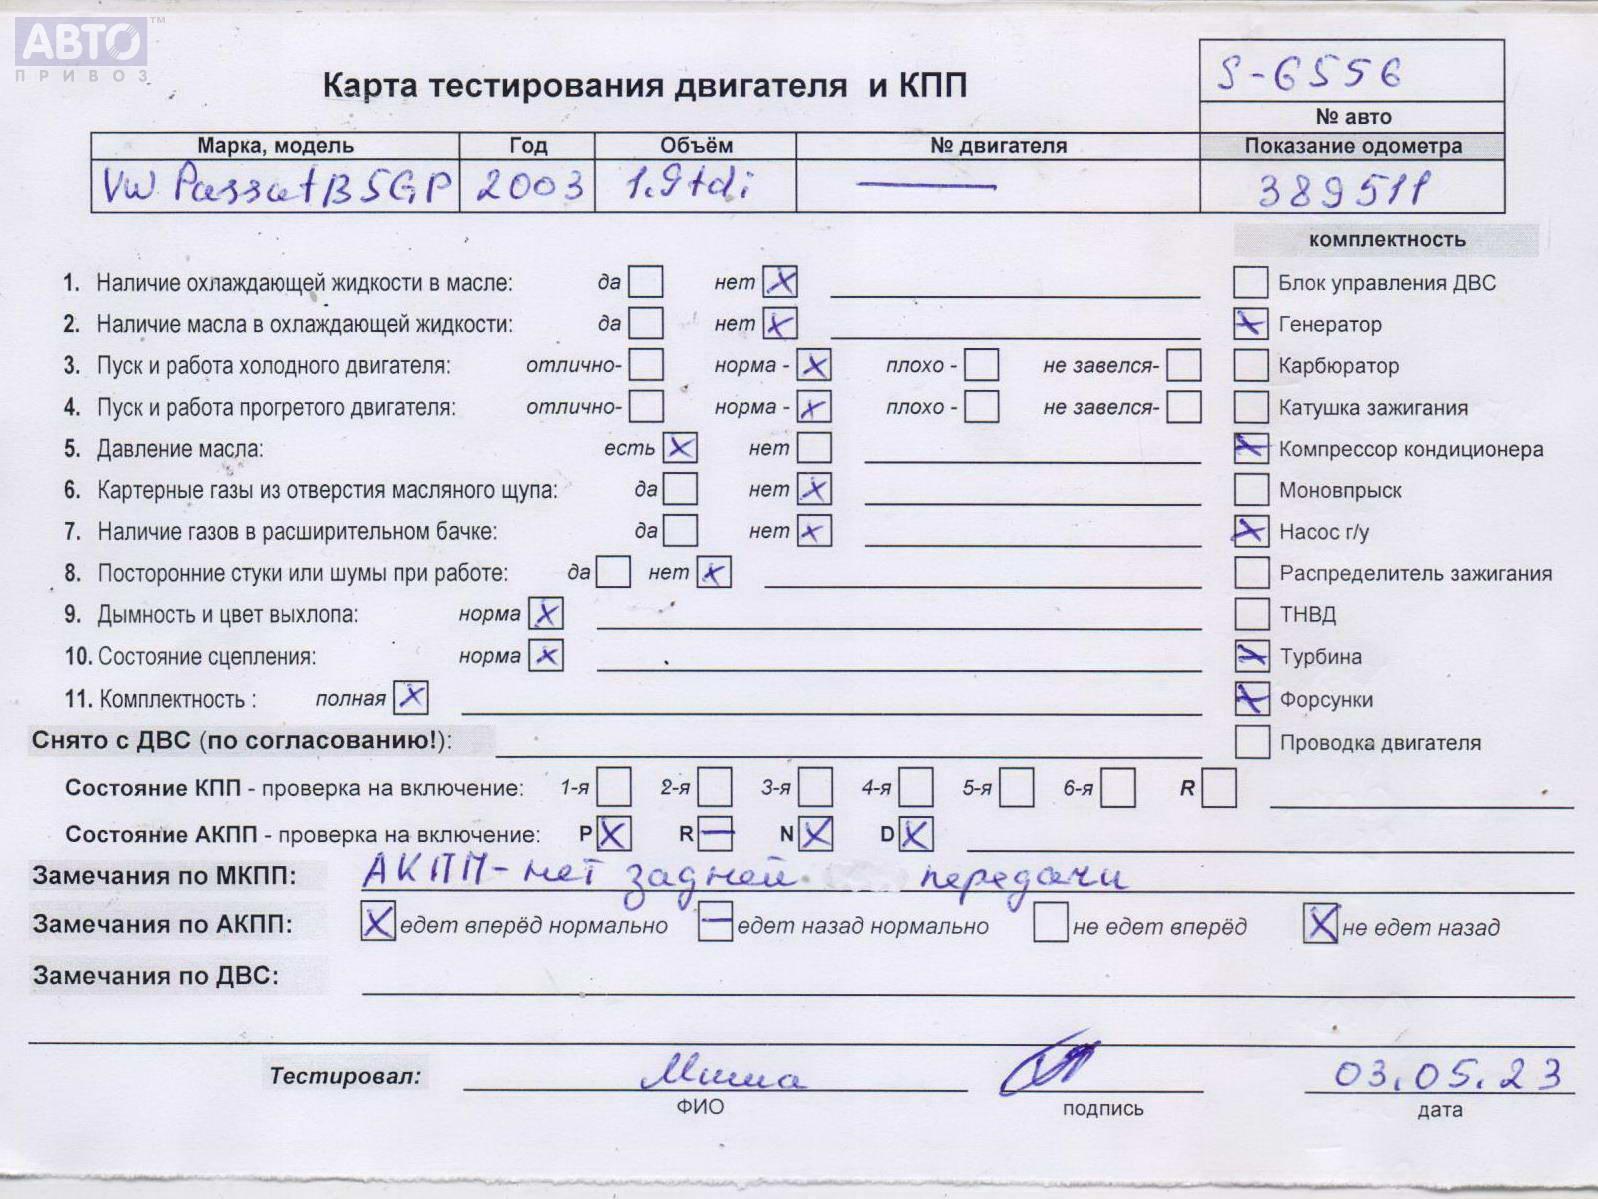 АВТО™
ПРИВОЗ
S-6556
Карта тестирования двигателя и КПП
№ авто
Марка, модель Год Объём № двигателя Показание одометра
VW Passat B5GP 2003 1.9tdi — 389511
комплектность
1. Наличие охлаждающей жидкости в масле: да нет X Блок управления ДВС
2. Наличие масла в охлаждающей жидкости: да нет X X Генератор
3. Пуск и работа холодного двигателя: отлично- норма - X плохо - не завелся- Карбюратор
4. Пуск и работа прогретого двигателя: отлично- норма - X плохо - не завелся- Катушка зажигания
5. Давление масла: есть X нет X Компрессор кондиционера
6. Картерные газы из отверстия масляного щупа: да нет X Моновпрыск
7. Наличие газов в расширительном бачке: да нет X X Насос г/у
8. Посторонние стуки или шумы при работе: да нет X Распределитель зажигания
9. Дымность и цвет выхлопа: норма X ТНВД
10. Состояние сцепления: норма X X Турбина
11. Комплектность : полная X X Форсунки
Снято с ДВС (по согласованию!): Проводка двигателя
Состояние КПП - проверка на включение: 1-я 2-я 3-я 4-я 5-я 6-я R
Состояние АКПП - проверка на включение: P X R — N X D X
Замечания по МКПП: АКПП - нет задней передачи
Замечания по АКПП: X едет вперёд нормально — едет назад нормально не едет вперёд X не едет назад
Замечания по ДВС:
Тестировал: Миша 03.05.23
ФИО подпись дата